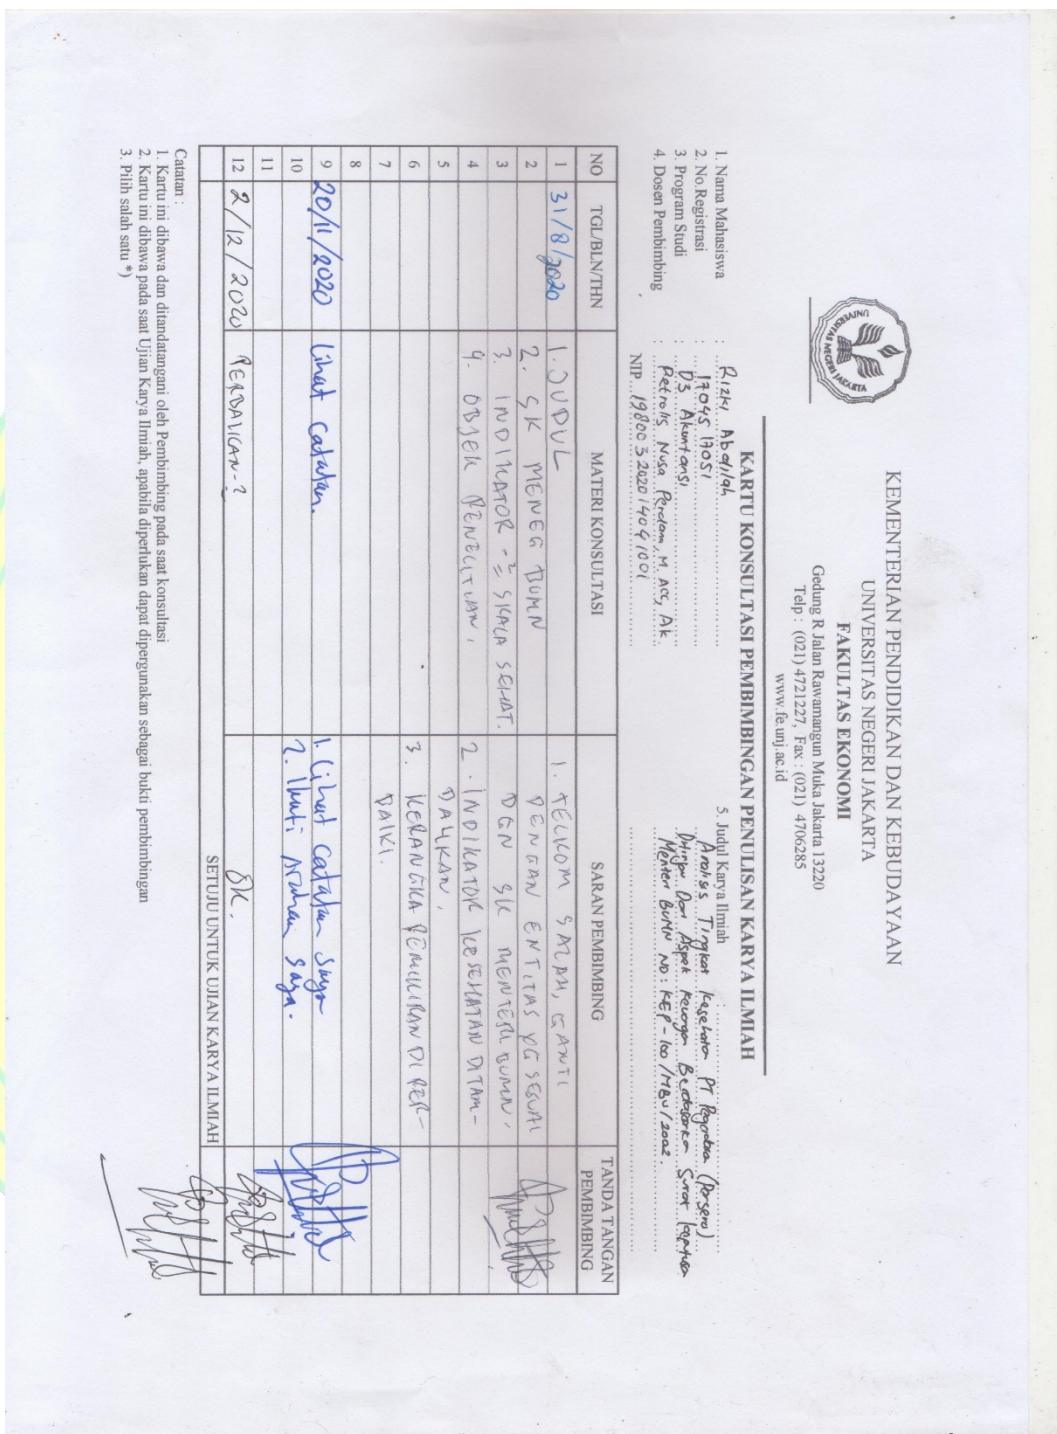 UNIVERSITAS NEGERI JAKARTA
KEMENTERIAN PENDIDIKAN DAN KEBUDAYAAN
UNIVERSITAS NEGERI JAKARTA
FAKULTAS EKONOMI
Gedung R Jalan Rawamangun Muka Jakarta 13220
Telp : (021) 4721227, Fax : (021) 4706285
www.fe.unj.ac.id
KARTU KONSULTASI PEMBIMBINGAN PENULISAN KARYA ILMIAH
1. Nama Mahasiswa : Rizki Abdilah
2. No.Registrasi : 1704517051
3. Program Studi : D3 Akuntansi
4. Dosen Pembimbing : Petrolis Nusa Perdana, M. Acc, Ak
NIP. 198003202014041001
5. Judul Karya Ilmiah :
Analisis Tingkat Kesehatan PT Pegadaian (Persero)
Ditinjau Dari Aspek Keuangan Berdasarkan Surat Keputusan
Menteri BUMN NO: KEP-100/MBU/2002.
NO TGL/BLN/THN MATERI KONSULTASI SARAN PEMBIMBING TANDA TANGAN PEMBIMBING
1 31/8/2020 1. JUDUL 1. TELKOM SALAH, GANTI
2 2. SK MENEG BUMN DENGAN ENTITAS YG SESUAI
3 3. INDIKATOR -2 SKALA SEHAT. DGN SK MENTERI BUMN.
4 4. OBJEK PENELITIAN. 2. INDIKATOR KESEHATAN DITAM-
5
6 3. KERANGKA PEMIKIRAN DI PER-
7 BAIKI.
8
9 20/11/2020 Lihat catatan. 1. Lihat catatan saya
10 2. Ikuti arahan saya.
11
12 2/12/2020 PERBAIKAN-2 OK.
SETUJU UNTUK UJIAN KARYA ILMIAH
Catatan :
1. Kartu ini dibawa dan ditandatangani oleh Pembimbing pada saat konsultasi
2. Kartu ini dibawa pada saat Ujian Karya Ilmiah, apabila diperlukan dapat dipergunakan sebagai bukti pembimbingan
3. Pilih salah satu *)